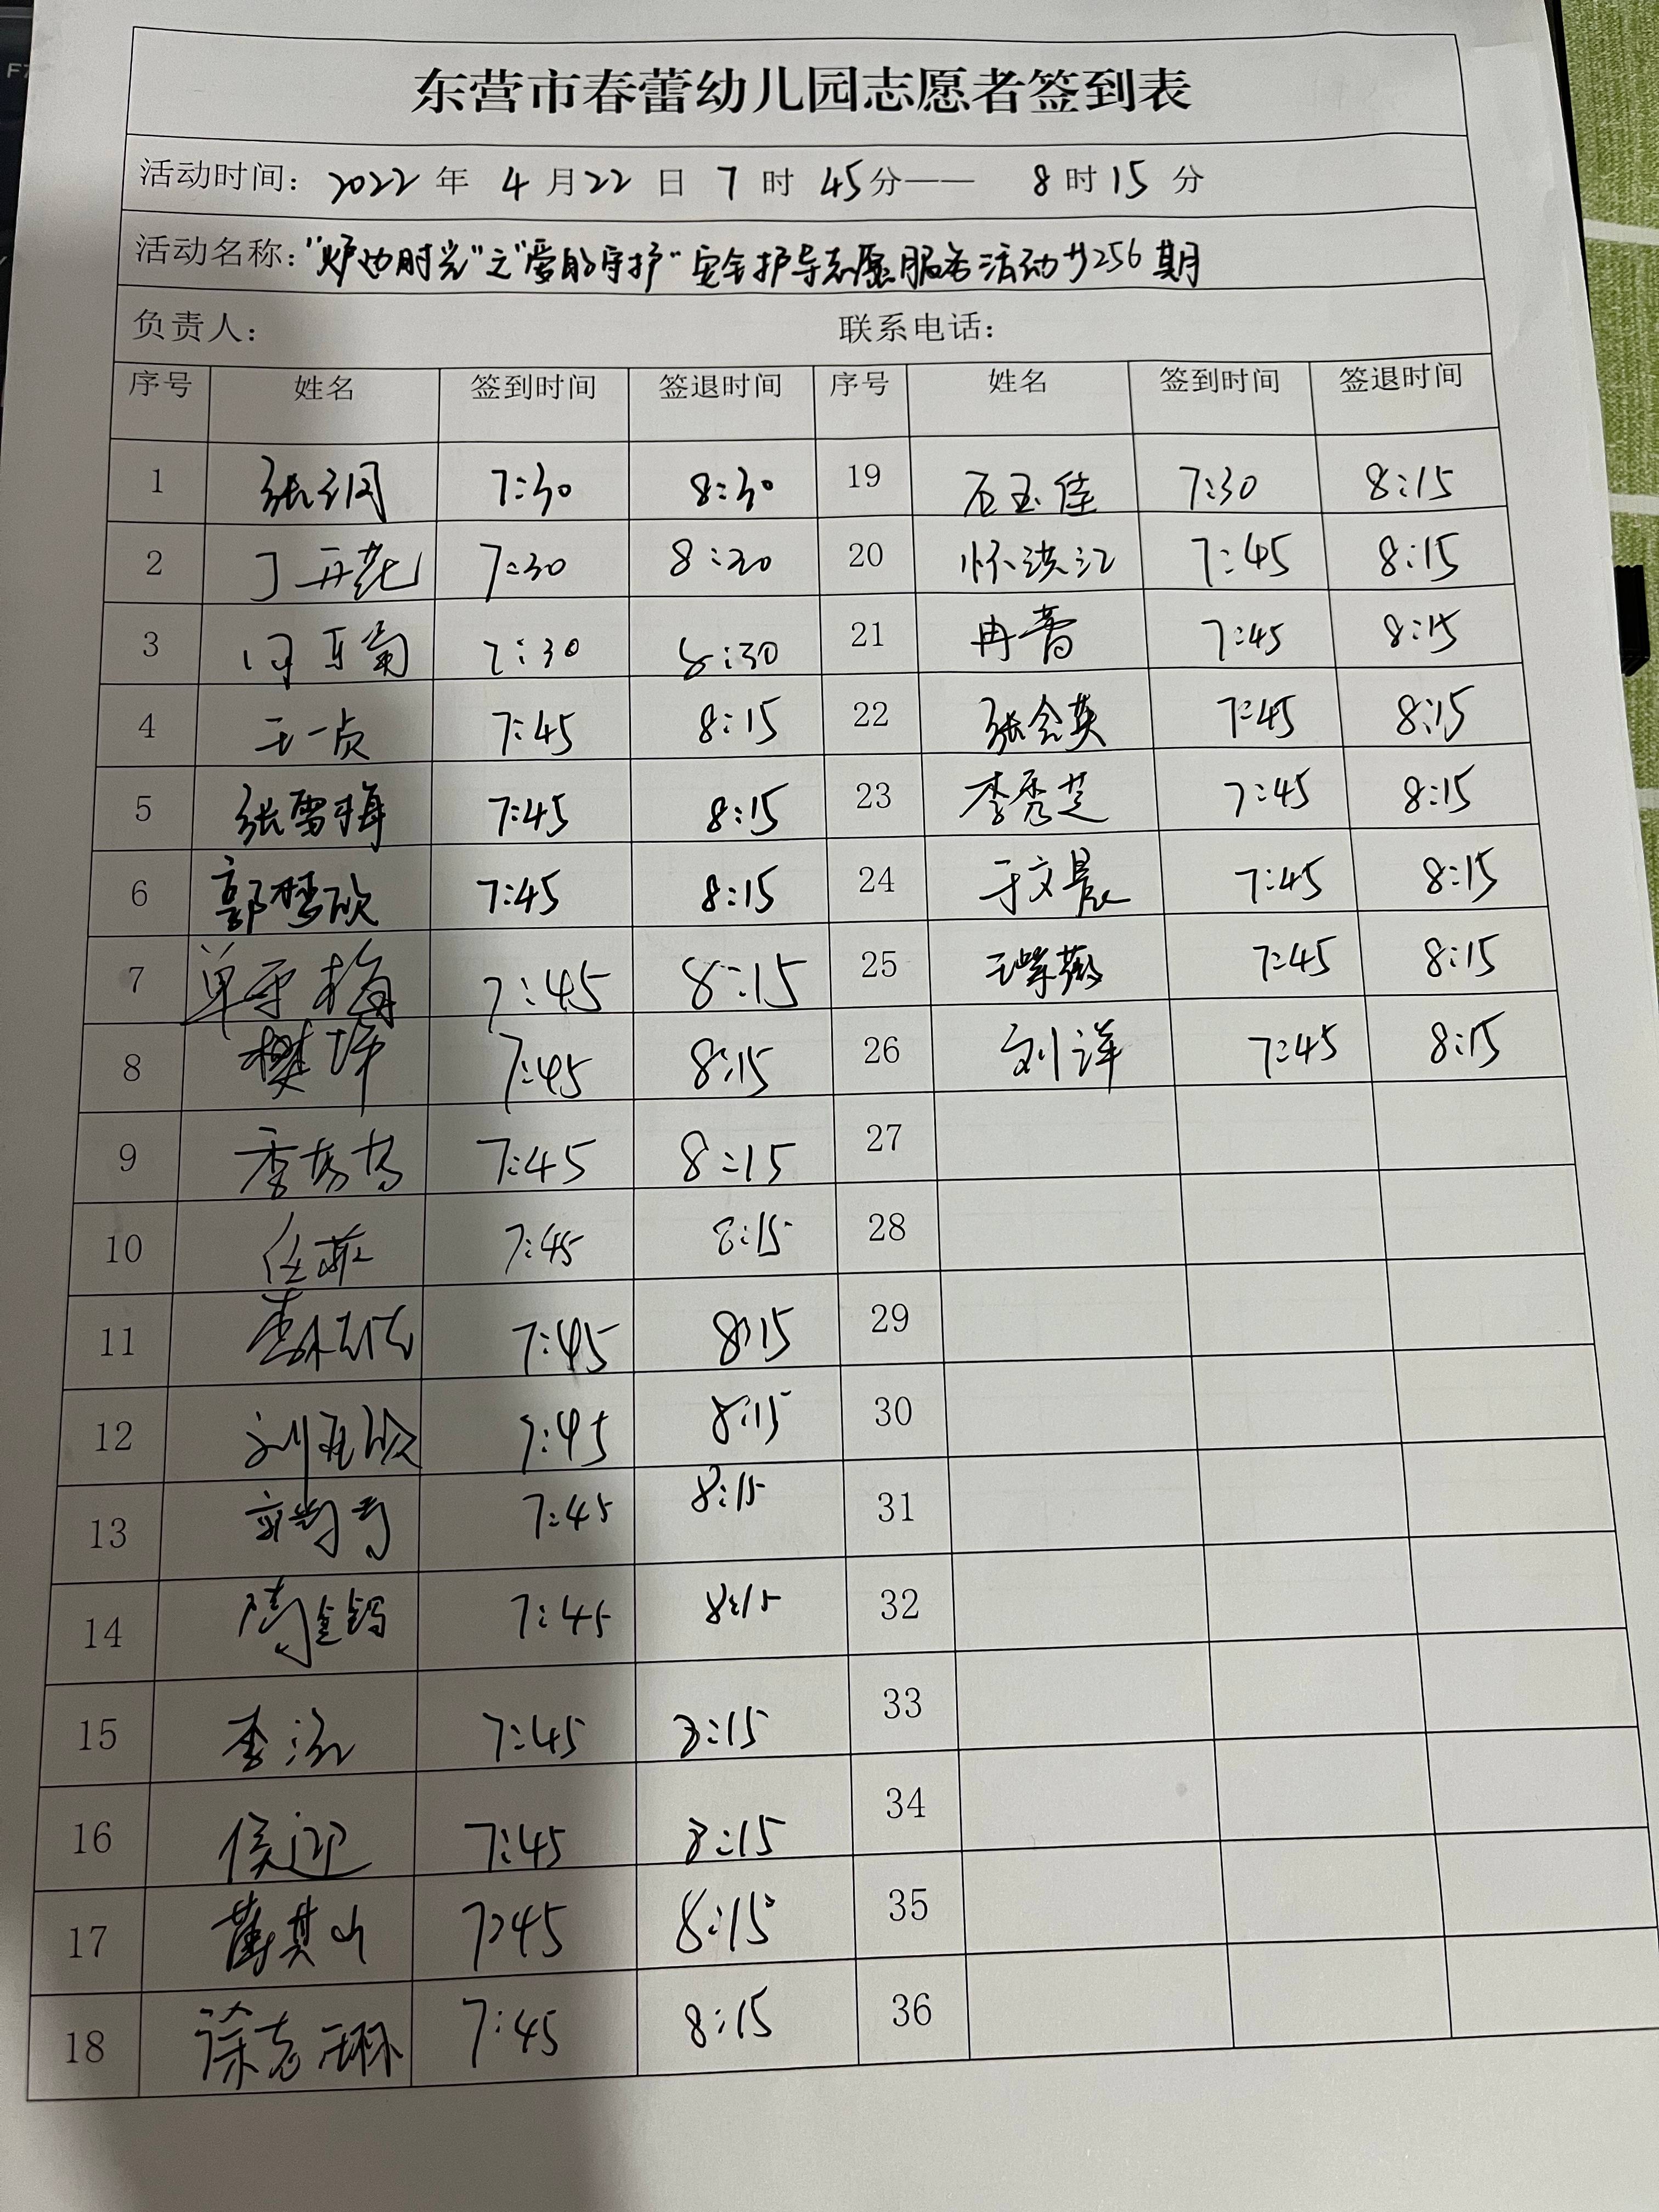 东营市春蕾幼儿园志愿者签到表
活动时间：2022年 4月22日 7时 45分—— 8时15分
活动名称："炉边时光"之"爱的守护"安全护导志愿服务活动 256期
负责人： 联系电话：
序号 姓名 签到时间 签退时间 序号 姓名 签到时间 签退时间
1 7:30 8:30 19 石玉佳 7:30 8:15
2 7:30 8:30 20 怀洪江 7:45 8:15
3 7:30 8:30 21 冉蕾 7:45 8:15
4 王一贞 7:45 8:15 22 张会英 7:45 8:15
5 张雪梅 7:45 8:15 23 李秀芝 7:45 8:15
6 郭梦欣 7:45 8:15 24 于文晨 7:45 8:15
7 7:45 8:15 25 王紫薇 7:45 8:15
8 樊坪 7:45 8:15 26 刘洋 7:45 8:15
9 7:45 8:15 27
10 7:45 8:15 28
11 7:45 8:15 29
12 7:45 8:15 30
13 7:45 8:15 31
14 7:45 8:15 32
15 7:45 8:15 33
16 侯迎 7:45 8:15 34
17 7:45 8:15 35
18 徐志琳 7:45 8:15 36
F7